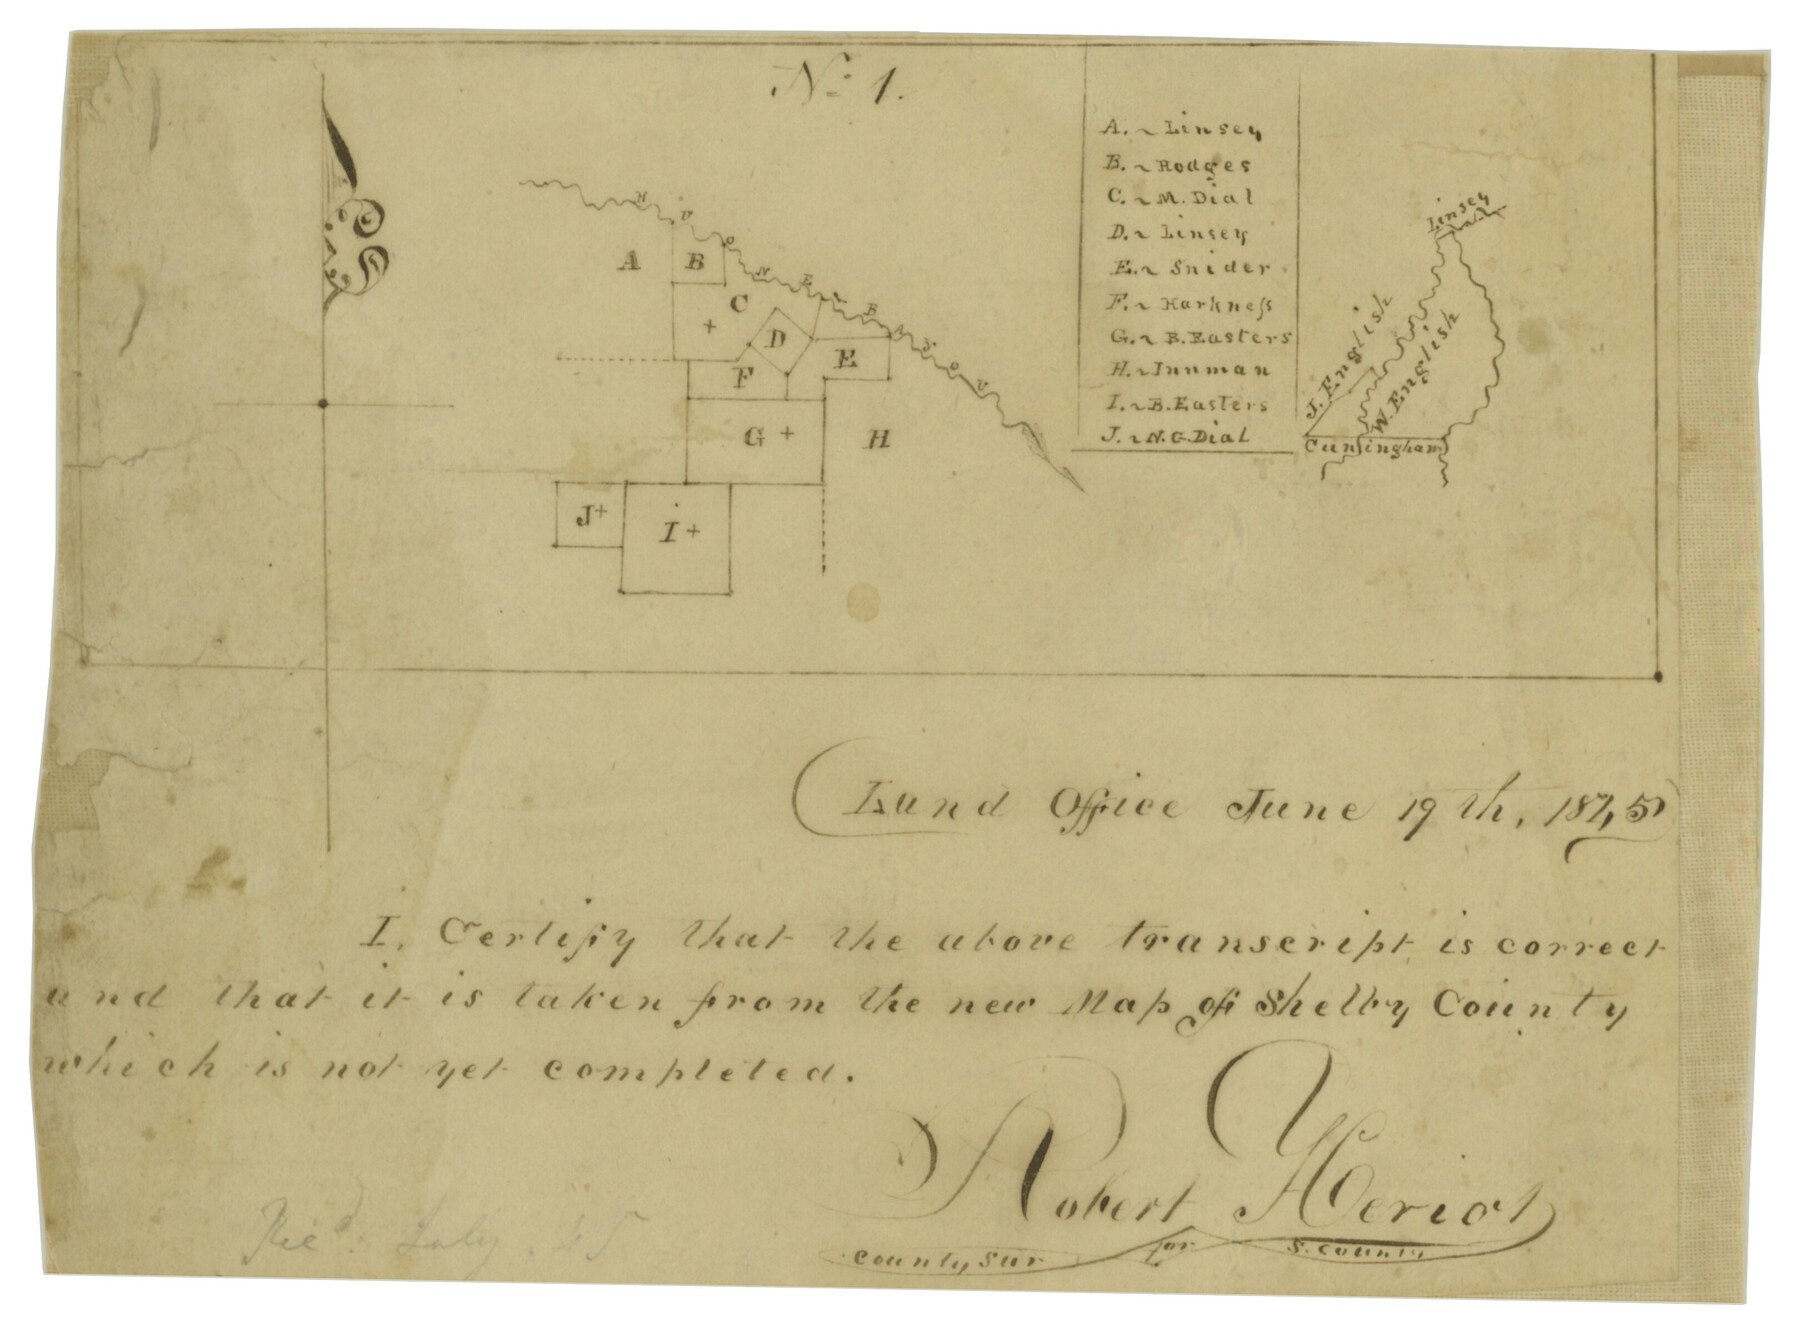 No. 1.
HUONE BAYOU
A
B
C
D
E
F
G
H
I
J
A. ~ Linsey
B. ~ Hodges
C. ~ M. Dial
D. ~ Linsey
E. ~ Snider
F. ~ Harkneſs
G. ~ B. Easters
H. ~ Innman
I. ~ B. Easters
J. ~ N. G. Dial
Linsey
J. English
W. English
Cunningham
Land Office June 19th, 1845
I, Certify that the above transcript is correct
and that it is taken from the new Map of Shelby County
which is not yet completed.
Robert Heriot
County Sur for S. County
Recd. July 45